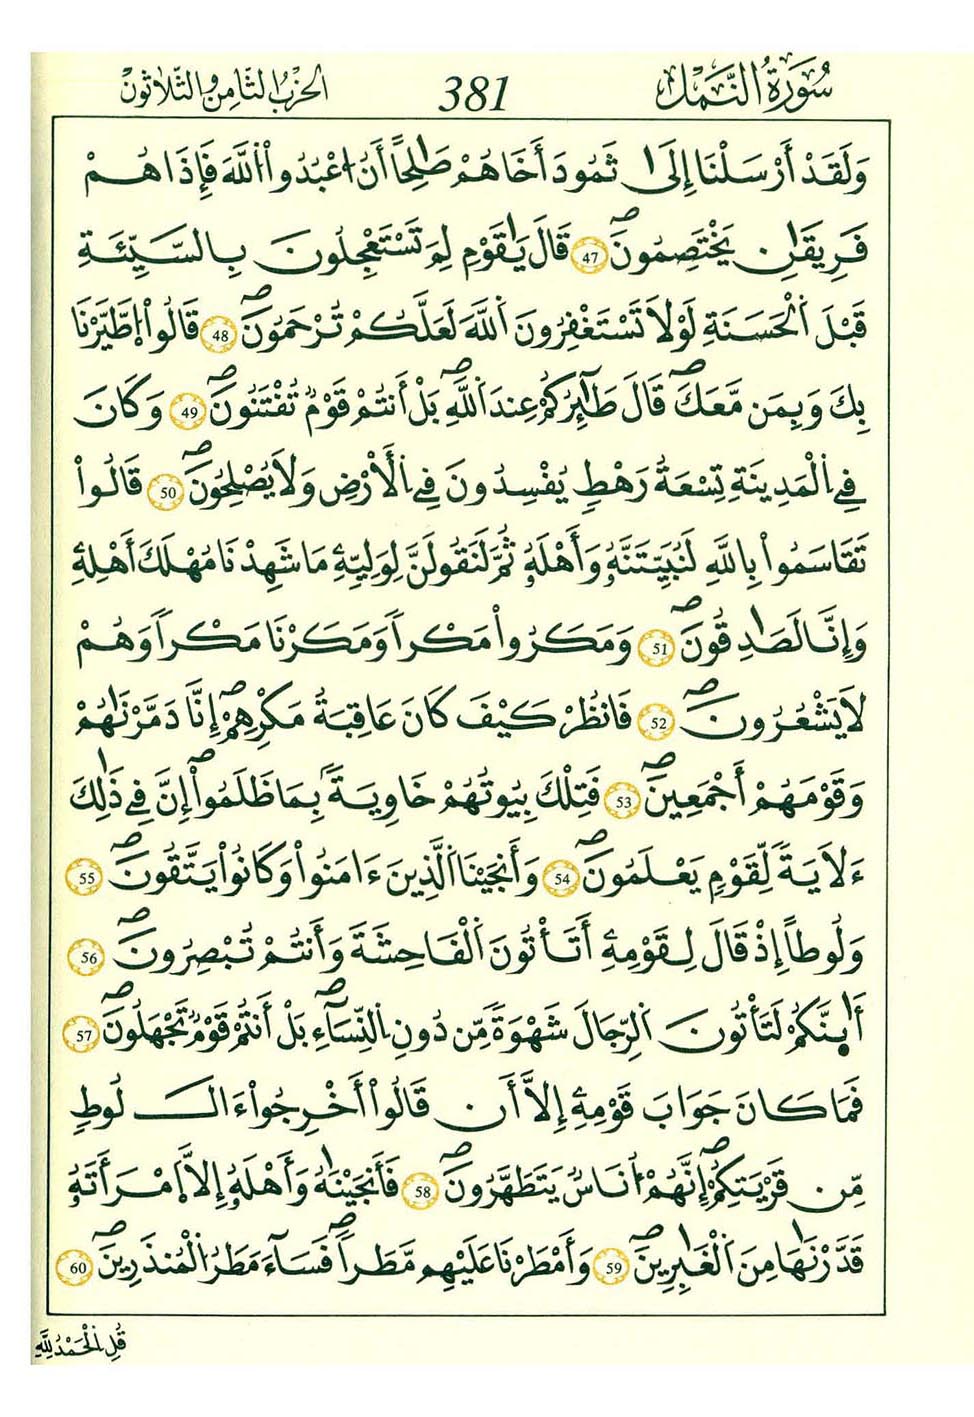 سُورَةُ النَّمْلِ 381 الحِزْبُ الثَّامِنُ وَالثَّلَاثُونَ
وَلَقَدْ أَرْسَلْنَا إِلَىٰ ثَمُودَ أَخَاهُمْ صَٰلِحاً أَنُ اُعْبُدُواْ اُللَّهَ فَإِذَا هُمْ
فَرِيقَٰنِ يَخْتَصِمُونَۖ 47 قَالَ يَٰقَوْمِ لِمَ تَسْتَعْجِلُونَ بِالسَّيِّئَةِ
قَبْلَ اَلْحَسَنَةِ لَوْلَا تَسْتَغْفِرُونَ اَللَّهَ لَعَلَّكُمْ تُرْحَمُونَۖ 48 قَالُواْ اُ۪طَّيَّرْنَا
بِكَ وَبِمَن مَّعَكَۖ قَالَ طَٰٓئِرُكُمْ عِندَ اَللَّهِۖ بَلْ أَنتُمْ قَوْمٌ تُفْتَنُونَۖ 49 وَكَانَ
فِے اِلْمَدِينَةِ تِسْعَةُ رَهْطٍ يُفْسِدُونَ فِے اِلْأَرْضِ وَلَا يُصْلِحُونَۖ 50 قَالُواْ
تَقَاسَمُواْ بِاللَّهِ لَنُبَيِّتَنَّهُۥ وَأَهْلَهُۥ ثُمَّ لَنَقُولَنَّ لِوَلِيِّهِۦ مَا شَهِدْنَا مُهْلَكَ أَهْلِهِۦ
وَإِنَّا لَصَٰدِقُونَۖ 51 وَمَكَرُواْ مَكْراً وَمَكَرْنَا مَكْراً وَهُمْ
لَا يَشْعُرُونَۖ 52 فَانظُرْ كَيْفَ كَانَ عَاقِبَةُ مَكْرِهِمْۖ إِنَّا دَمَّرْنَٰهُمْ
وَقَوْمَهُمْ أَجْمَعِينَۖ 53 فَتِلْكَ بُيُوتُهُمْ خَاوِيَةَۢ بِمَا ظَلَمُواْۖ إِنَّ فِے ذَٰلِكَ
ءَلَايَةً لِّقَوْمٍ يَعْلَمُونَۖ 54 وَأَنجَيْنَا اَلَّذِينَ ءَامَنُواْ وَكَانُواْ يَتَّقُونَۖ 55
وَلُوطاً إِذْ قَالَ لِقَوْمِهِۦ أَتَأْتُونَ اَلْفَاحِشَةَ وَأَنتُمْ تُبْصِرُونَۖ 56
أَئِنَّكُمْ لَتَأْتُونَ اَلرِّجَالَ شَهْوَةً مِّن دُونِ اِلنِّسَآءِۖ بَلْ أَنتُمْ قَوْمٌ تَجْهَلُونَۖ 57
فَمَا كَانَ جَوَابَ قَوْمِهِۦ إِلَّا أَن قَالُواْ أَخْرِجُواْ ءَالَ لُوطٍ
مِّن قَرْيَتِكُمْۖ إِنَّهُمْ أُنَاسٌ يَتَطَهَّرُونَۖ 58 فَأَنجَيْنَٰهُ وَأَهْلَهُۥ إِلَّا اَ۪مْرَأَتَهُۥ
قَدَّرْنَٰهَا مِنَ اَلْغَٰبِرِينَۖ 59 وَأَمْطَرْنَا عَلَيْهِم مَّطَراًۖ فَسَآءَ مَطَرُ اُلْمُنذَرِينَۖ 60
قُلِ اِلْحَمْدُ لِلَّهِ